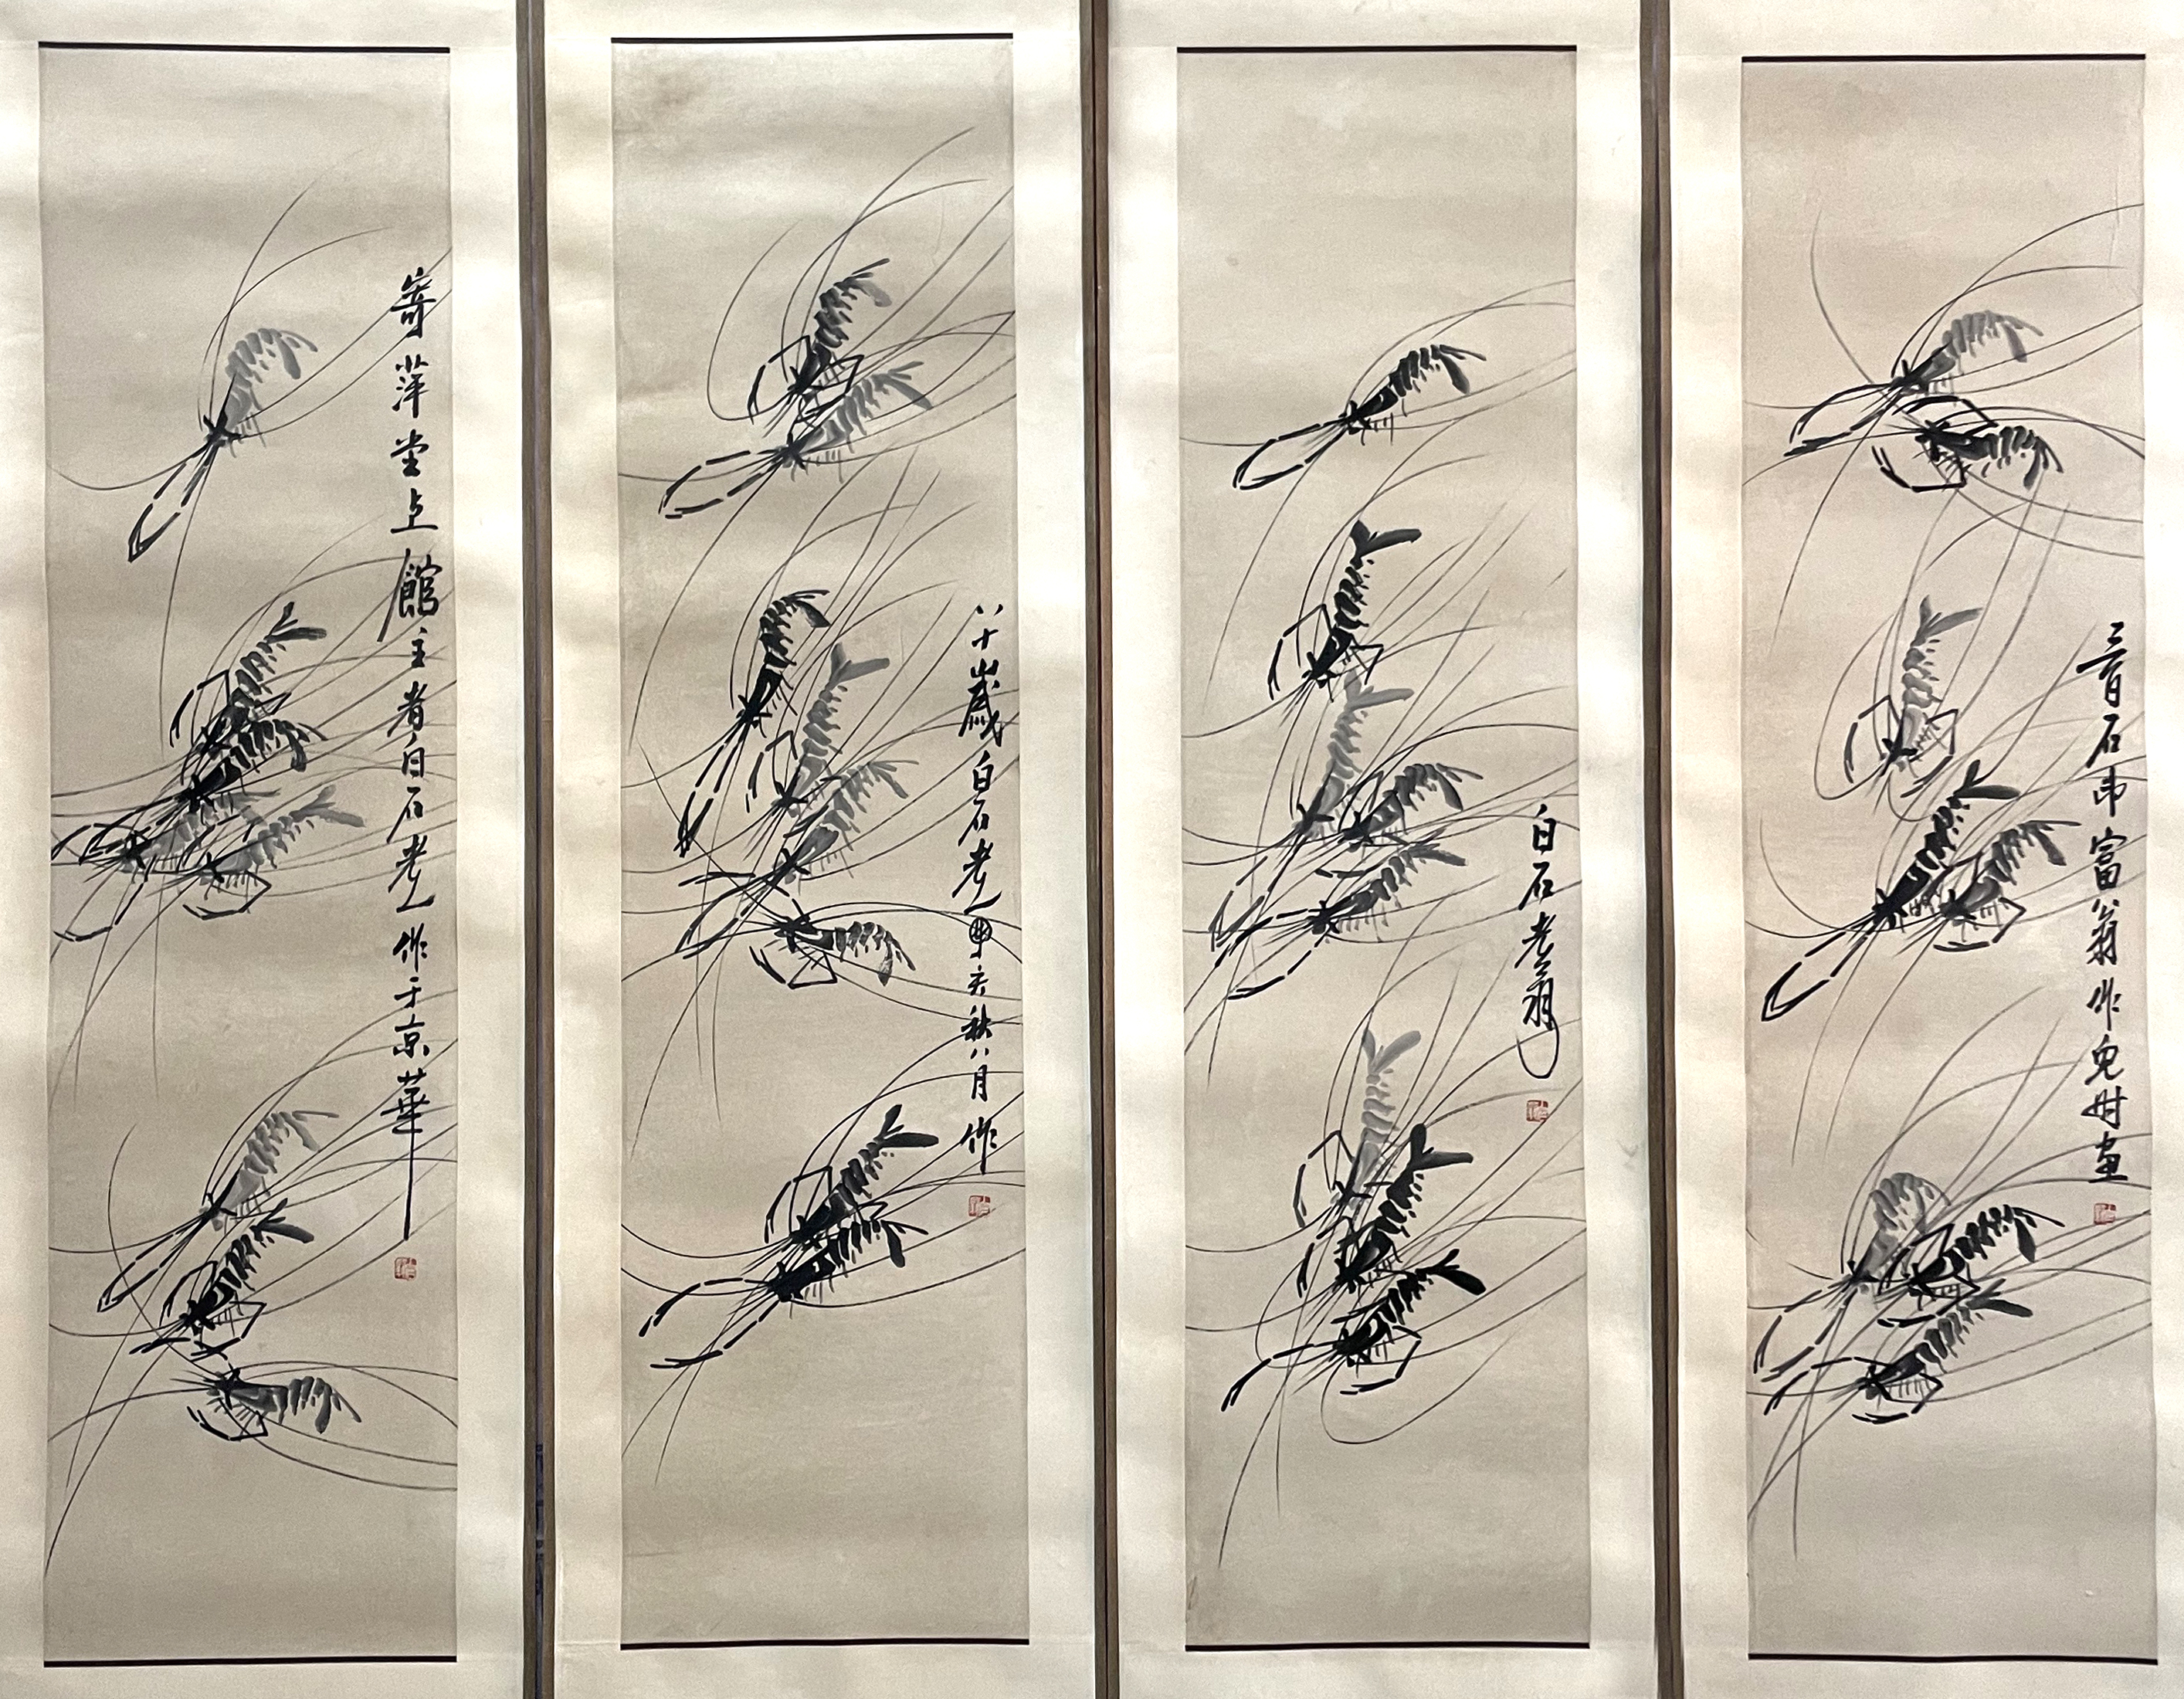 三百石印富翁作兒时畫
白石老翁
八十歲白石老人甲亥秋八月作
寄萍堂上館主者白石老人作于京華